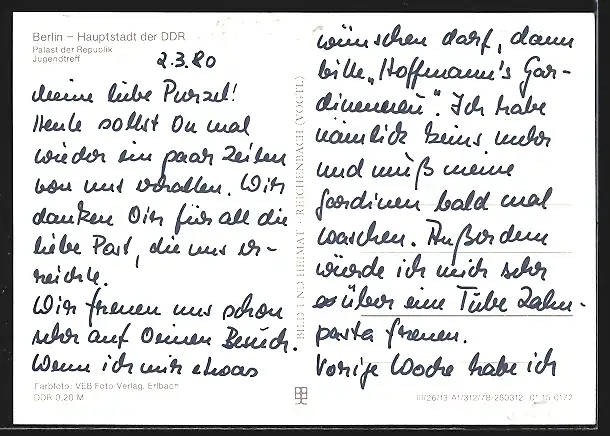 Berlin – Hauptstadt der DDR
Palast der Republik
Jugendtreff
2.3.80
Meine liebe Purzel!
Heute sollst Du mal
wieder ein paar Zeilen
von uns erhalten. Wir
danken Dir für all die
liebe Post, die uns er-
reichte.
Wir freuen uns schon
sehr auf Deinen Besuch.
Wenn ich mir etwas
wünschen darf, dann
bitte „Hoffmann's Gar-
dinenneu". Ich habe
nämlich keins mehr
und muß meine
Gardinen bald mal
waschen. Außerdem
würde ich mich sehr
über eine Tube Zahn-
pasta freuen.
Vorige Woche habe ich
BILD UND HEIMAT · REICHENBACH (VOGTL)
Farbfoto: VEB Foto-Verlag, Erlbach
DDR 0,20 M
III/26/13 A1/312/78-250312 01 15 0172